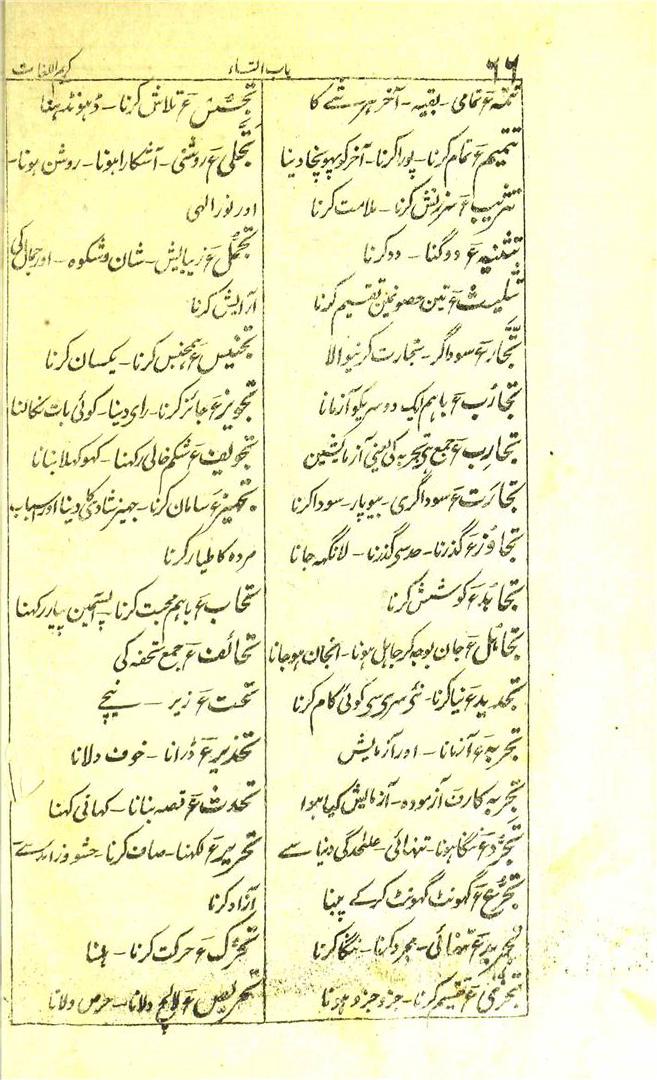 ٦٦ باب التاء کریم اللغات
تتمہ ع تمامی - بقیہ - آخر ہر شے کا
تتمیم ع تمام کرنا - پورا کرنا - آخر کو پہونچا دینا
تثریب ع سرزنش کرنا - ملامت کرنا
تثنیہ ع دوگنا - دو کرنا
تثلیث ع تین حصونمین تقسیم کرنا
تُجّار ع سوداگر - تجارت کرنیوالا
تجارُب ع باہم ایک دوسریکو آزمانا
تجارِب ع جمع تجربہ کی یعنی آزمایشین
تجارَت ع سوداگری - بیوپار - سودا کرنا
تجاوُز ع گذرنا - حد سی گذرنا - لانگہہ جانا
تجاہُد ع کوشش کرنا
تجاہُل ع جان بوجہکر جاہل ہونا - انجان ہو جانا
تجدید ع نیا کرنا - نئی سری سی کوئی کام کرنا
تجربہ ع آزمانا - اور آزمایش
تجربہ کار ف آزمودہ - آزمایش کیا ہوا
تجرُّد ع ننگا ہونا - تنہائی - علٰحدگی دنیا سے
تجرُّع ع گہونٹ گہونٹ کرکے پینا
تجرید ع تنہائی - مجرد کرنا - ننگا کرنا
تجزّی ع تقسیم کرنا - جزو جزو ہونا
تجسُّس ع تلاش کرنا - ڈہونڈہنا
تجلّی ع روشنی - آشکارا ہونا - روشن ہونا -
اور نور الہی
تجمُّل ع زیبایش - شان و شکوہ - اور جمال کی
آرایش کرنا
تجنیس ع ہمجنس کرنا - یکسان کرنا
تجویز ع جائز کرنا - رای دینا - کوئی بات نکالنا
تجویف ع شکم خالی رکہنا - کہوکہلا بنانا
تجہیز ع سامان کرنا - جہیز شادی کا دینا اور اسباب
مردہ کا طیار کرنا
تحاب ع باہم محبت کرنا - آپسمین پیار رکہنا
تحائف ع جمع تحفہ کی
تحت ع زیر - نیچے
تحذیر ع ڈرانا - خوف دلانا
تحدث ع قصہ بنانا - کہانی کہنا
تحریر ع لکہنا - صاف کرنا - حشو و زائد سے
آزاد کرنا
تحرُّک ع حرکت کرنا - ہلنا
تحریص ع لالچ دلانا - حرص دلانا